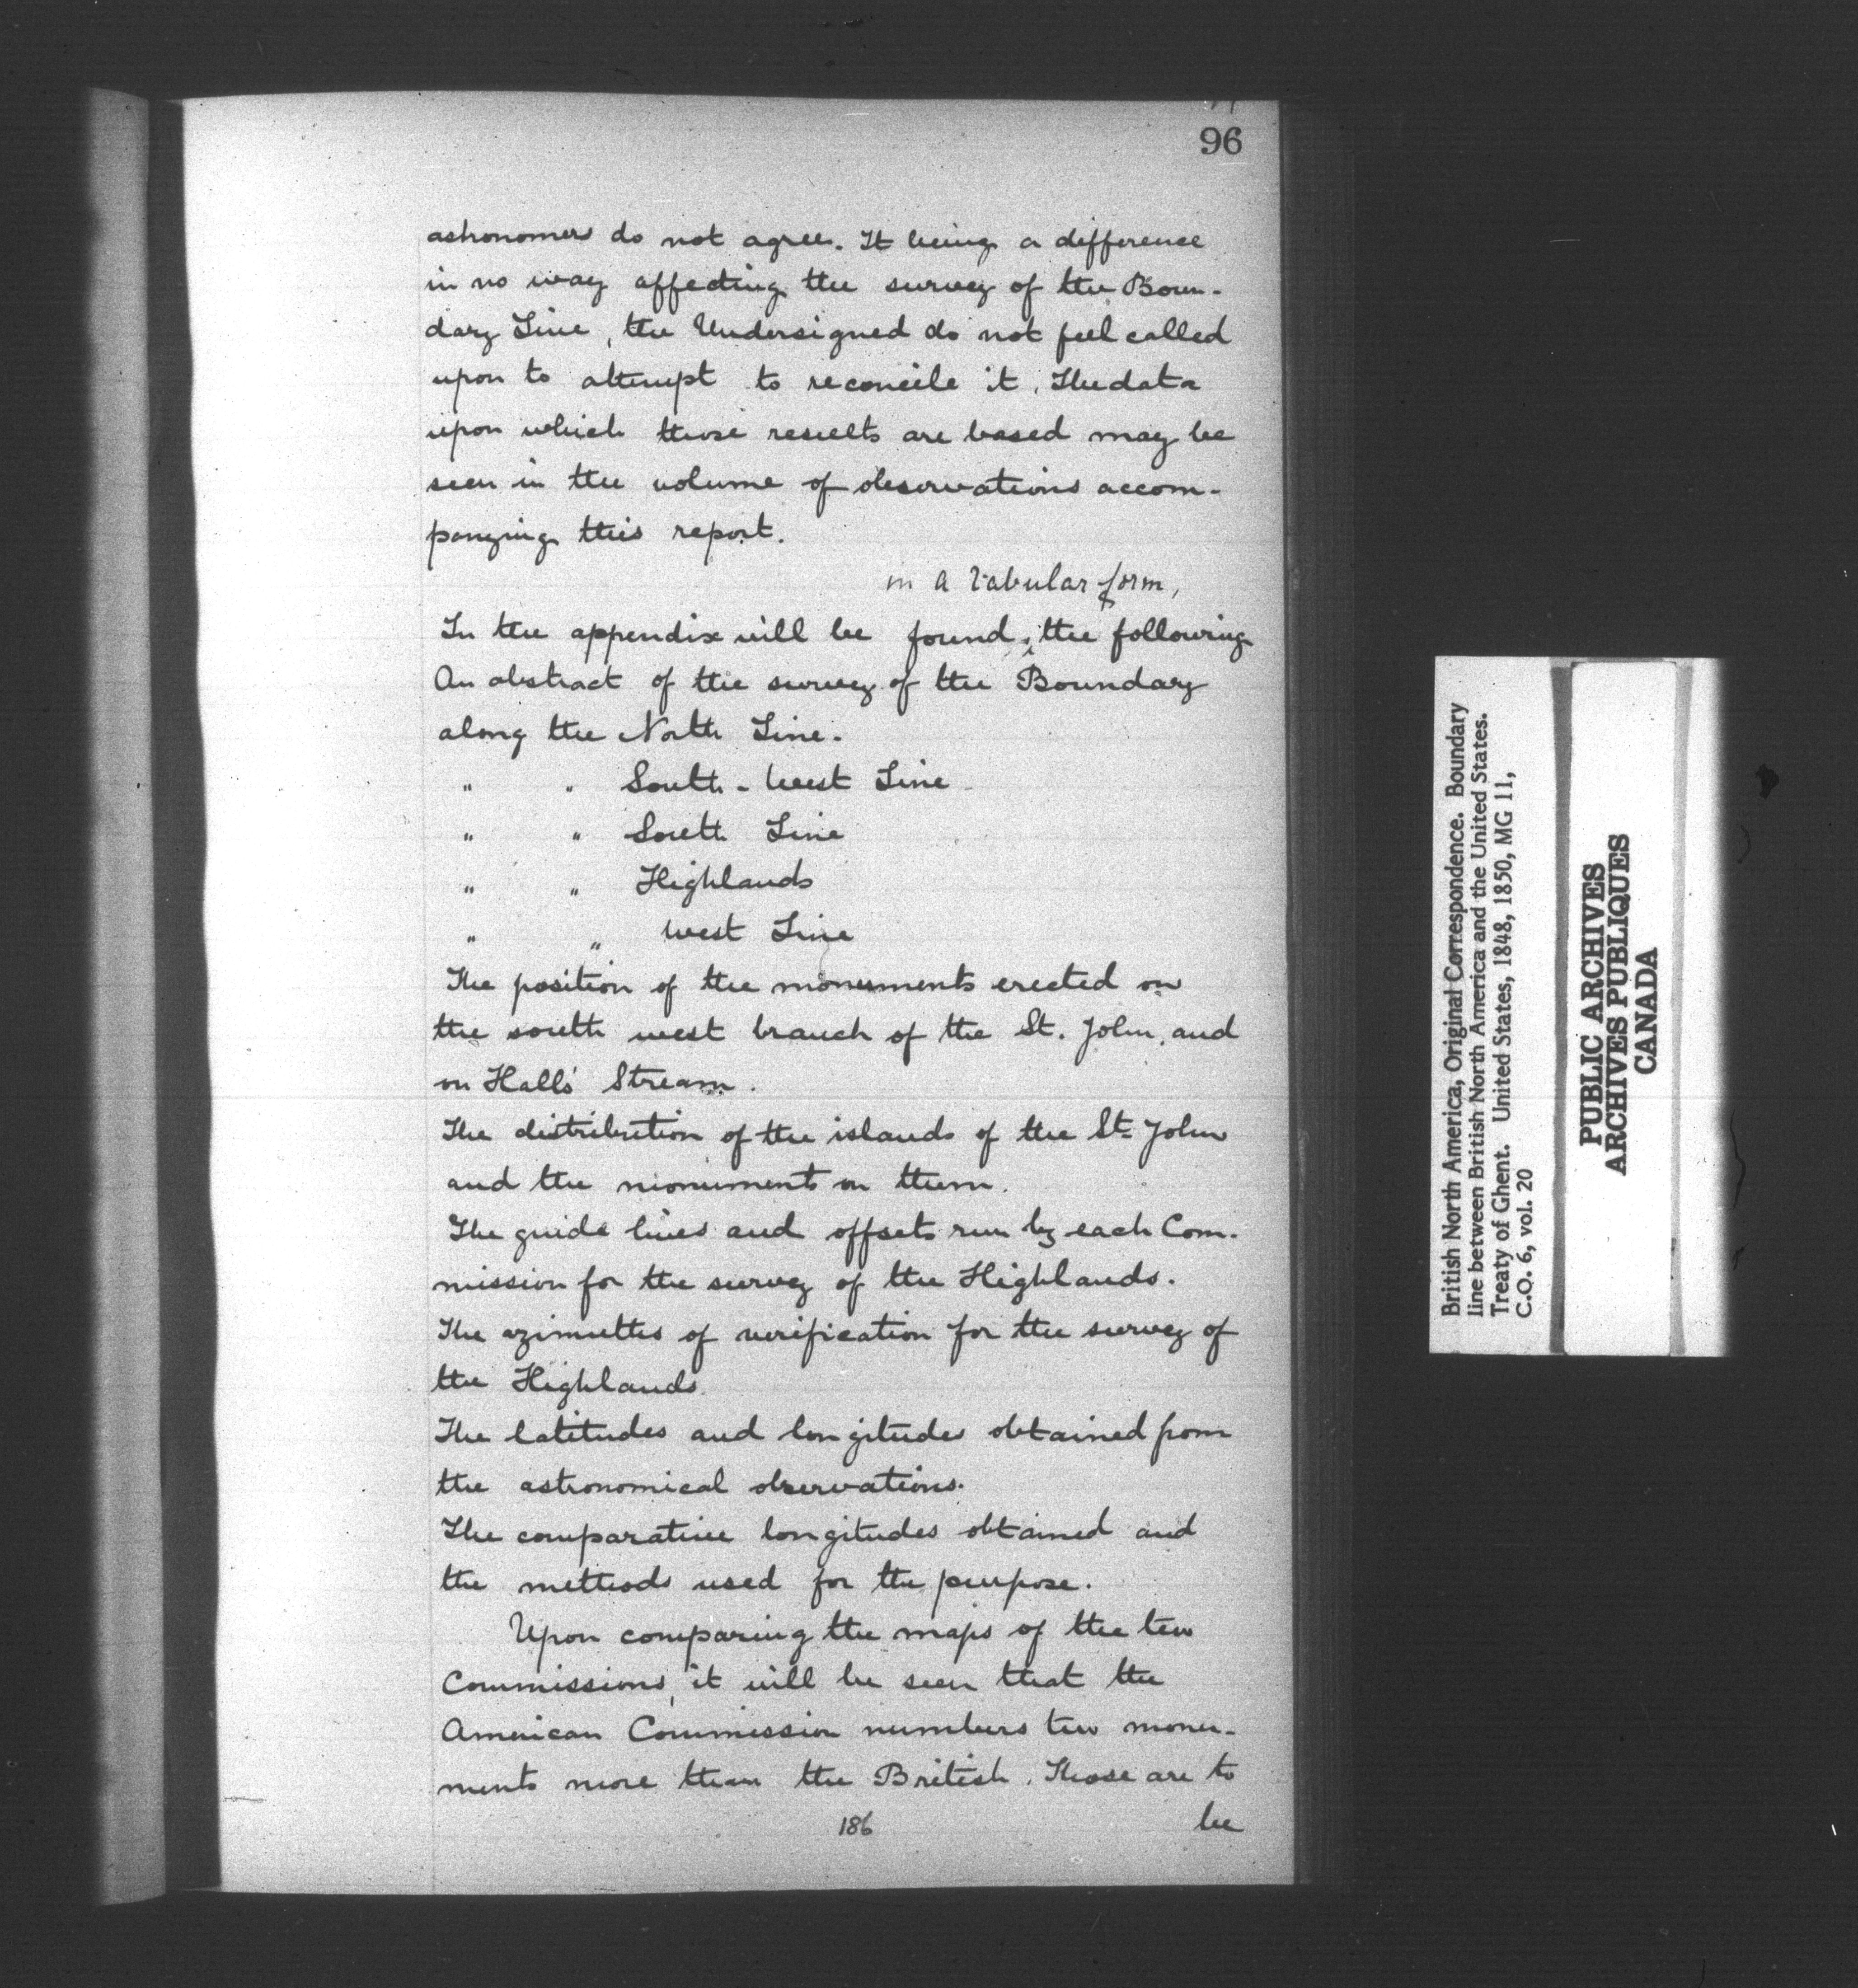 96
astronomers do not agree. It being a difference
in no way affecting the survey of the Boun-
dary Line, the Undersigned do not feel called
upon to attempt to reconcile it. The data
upon which those results are based may be
seen in the volume of observations accom-
panying this report.
in a tabular form,
In the appendix will be found, the following
An abstract of the survey of the Boundary
along the North Line.
" " South-West Line
" " South Line
" " Highlands
" " West Line
The position of the monuments erected on
the south west branch of the St. John, and
on Halls' Stream.
The distribution of the islands of the St. John
and the monuments on them.
The guide lines and offsets run by each Com-
mission for the survey of the Highlands.
The azimuths of verification for the survey of
the Highlands.
The latitudes and longitudes obtained from
the astronomical observations.
The comparative longitudes obtained and
the methods used for the purpose.
Upon comparing the maps of the two
Commissions, it will be seen that the
American Commission numbers two monu-
ments more than the British. Those are to
be
186
British North America, Original Correspondence. Boundary
line between British North America and the United States.
Treaty of Ghent. United States, 1848, 1850, MG 11,
C.O. 6, vol. 20
PUBLIC ARCHIVES
ARCHIVES PUBLIQUES
CANADA